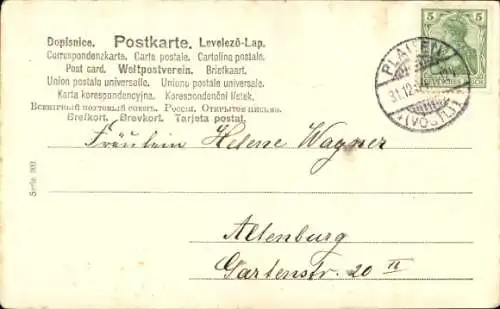 Dopisnice. Postkarte. Levelező-Lap.
Correspondenzkarte. Carta postale. Cartolina postale.
Post card. Weltpostverein. Briefkaart.
Union postale universelle. Unione postale universale.
Karta korespondencyjna. Korespondenční lístek.
Всемірный почтовый союзъ. Россія. Открытое письмо.
Brefkort. Brevkort. Tarjeta postal.
5 5
PLAUEN
31.12.
(VOGTL.)
Fräulein Helene Wagner
Altenburg
Gartenstr. 20 II
Serie 303